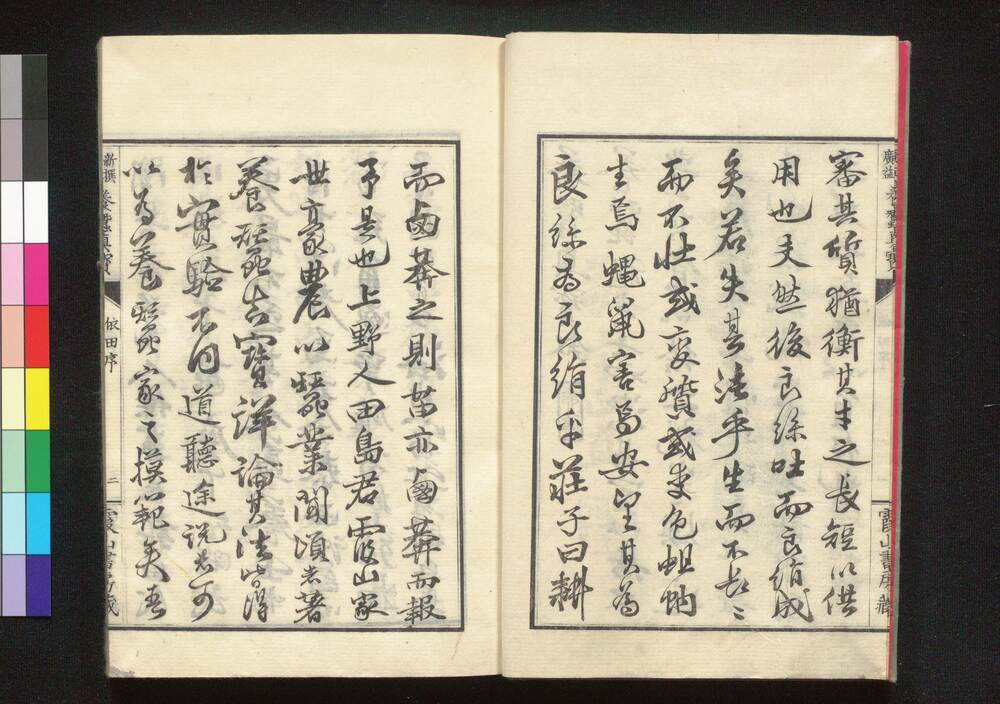 審其質猶衡其才之長短以供
用也夫然後良絲吐而良絹成
矣若失其法乎生而不長々
而不壮或変質或変色蛆蚋
生焉蝿鼠害焉安望其為
良絲為良絹乎荘子曰耕
而鹵莽之則苗亦鹵莽而報
予是也上野人田島君霞山家
世豪農以蚕業聞頃者著
養蚕真寶詳論其法皆得
於實驗不同道聽途説者可
以為養蚕家之摸範矣吾
新撰養蚕真寶
依田序
二
霞山書房蔵